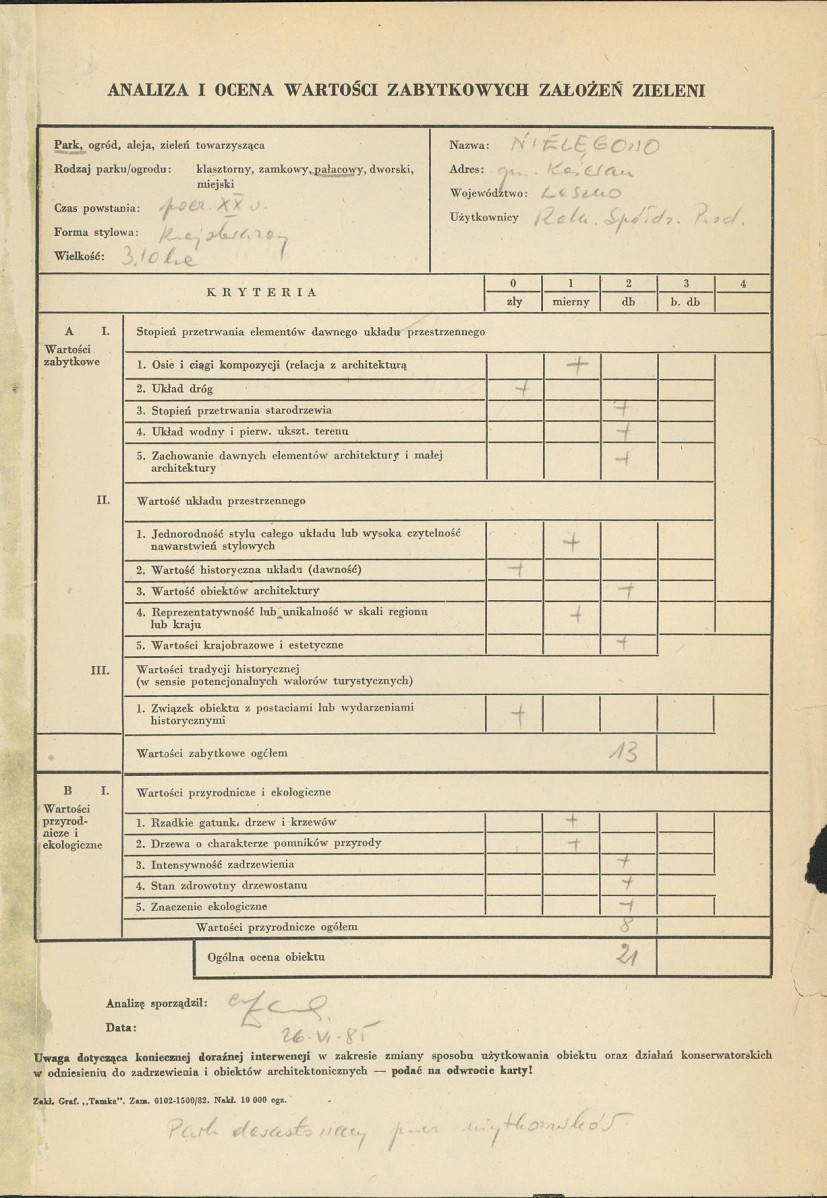 ANALIZA I OCENA WARTOŚCI ZABYTKOWYCH ZAŁOŻEŃ ZIELENI
Park, ogród, aleja, zieleń towarzysząca
Rodzaj parku/ogrodu: klasztorny, zamkowy, pałacowy, dworski,
miejski
Czas powstania: pocz. XX w.
Forma stylowa: Krajobrazowy
Wielkość: 3,10 ha
Nazwa: NIELĘGOWO
Adres: gm. Kościan
Województwo: Leszno
Użytkownicy Roln. Spółdz. Prod.
KRYTERIA
0 1 2 3 4
zły mierny db b. db
A I. Stopień przetrwania elementów dawnego układu przestrzennego
Wartości
zabytkowe
1. Osie i ciągi kompozycji (relacja z architekturą +
2. Układ dróg +
3. Stopień przetrwania starodrzewia +
4. Układ wodny i pierw. ukszt. terenu +
5. Zachowanie dawnych elementów architektury i małej +
architektury
II. Wartość układu przestrzennego
1. Jednorodność stylu całego układu lub wysoka czytelność
nawarstwień stylowych +
2. Wartość historyczna układu (dawność) +
3. Wartość obiektów architektury +
4. Reprezentatywność lub unikalność w skali regionu +
lub kraju
5. Wartości krajobrazowe i estetyczne +
III. Wartości tradycji historycznej
(w sensie potencjonalnych walorów turystycznych)
1. Związek obiektu z postaciami lub wydarzeniami +
historycznymi
Wartości zabytkowe ogółem 13
B I. Wartości przyrodnicze i ekologiczne
Wartości
przyrod-
nicze i
ekologiczne
1. Rzadkie gatunki drzew i krzewów +
2. Drzewa o charakterze pomników przyrody +
3. Intensywność zadrzewienia +
4. Stan zdrowotny drzewostanu +
5. Znaczenie ekologiczne +
Wartości przyrodnicze ogółem 8
Ogólna ocena obiektu 21
Analizę sporządził:
Data: 26-VI-85
Uwaga dotycząca koniecznej doraźnej interwencji w zakresie zmiany sposobu użytkowania obiektu oraz działań konserwatorskich
w odniesieniu do zadrzewienia i obiektów architektonicznych — podać na odwrocie karty!
Zakł. Graf. „Tamka". Zam. 0102-1500/82. Nakł. 10 000 egz.
Park dewastowany przez użytkowników